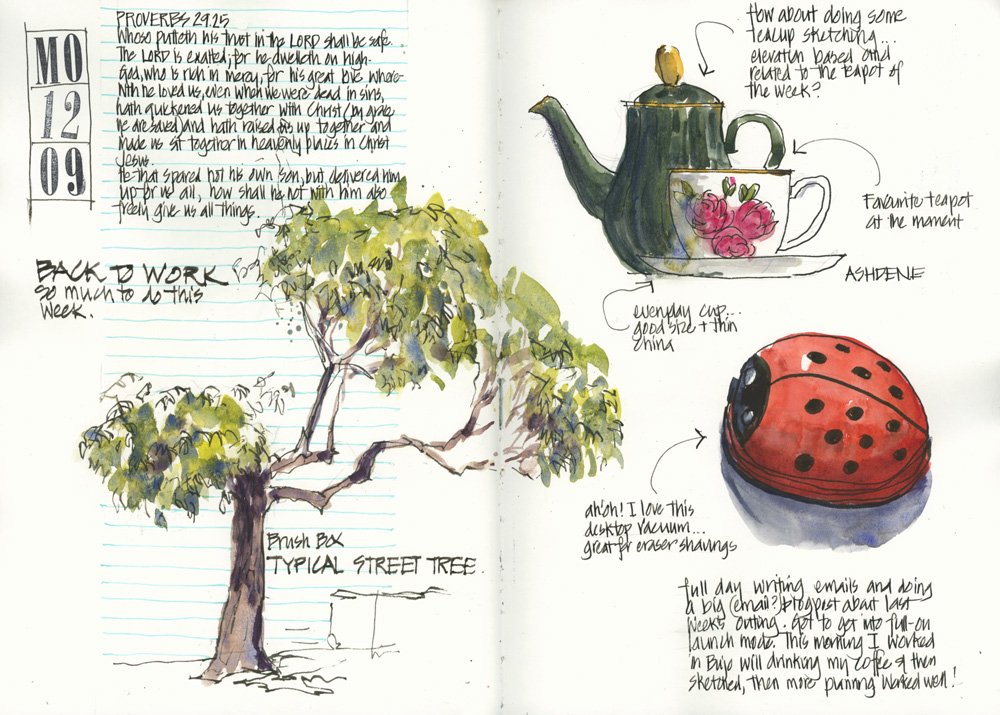 MO
12
09
PROVERBS 29.25
Whoso putteth his trust in the LORD shall be safe.
The LORD is exalted; for he dwelleth on high-
God, who is rich in mercy, for his great love where-
with he loved us, even when we were dead in sins,
hath quickened us together with Christ (by grace
ye are saved) and hath raised us up together and
made us sit together in heavenly places in Christ
Jesus.
He that spared not his own son, but delivered him
up for us all, how shall he not with him also
freely give us all things.
BACK TO WORK
so much to do this
week.
Brush Box
TYPICAL STREET TREE.
How about doing some
teacup sketching...
elevation based and
related to the teapot of
the week?
Favourite teapot
at the moment
ASHDENE
everyday cup...
good size + thin
china
ah'oh! I love this
desktop vacuum...
great for eraser shavings
full day writing emails and doing
a big (email?) blogpost about last
weeks outing. Got to get into full-on
launch mode. This morning I worked
in Bujo will drinking my coffee & then
sketched, then more planning. Worked well!